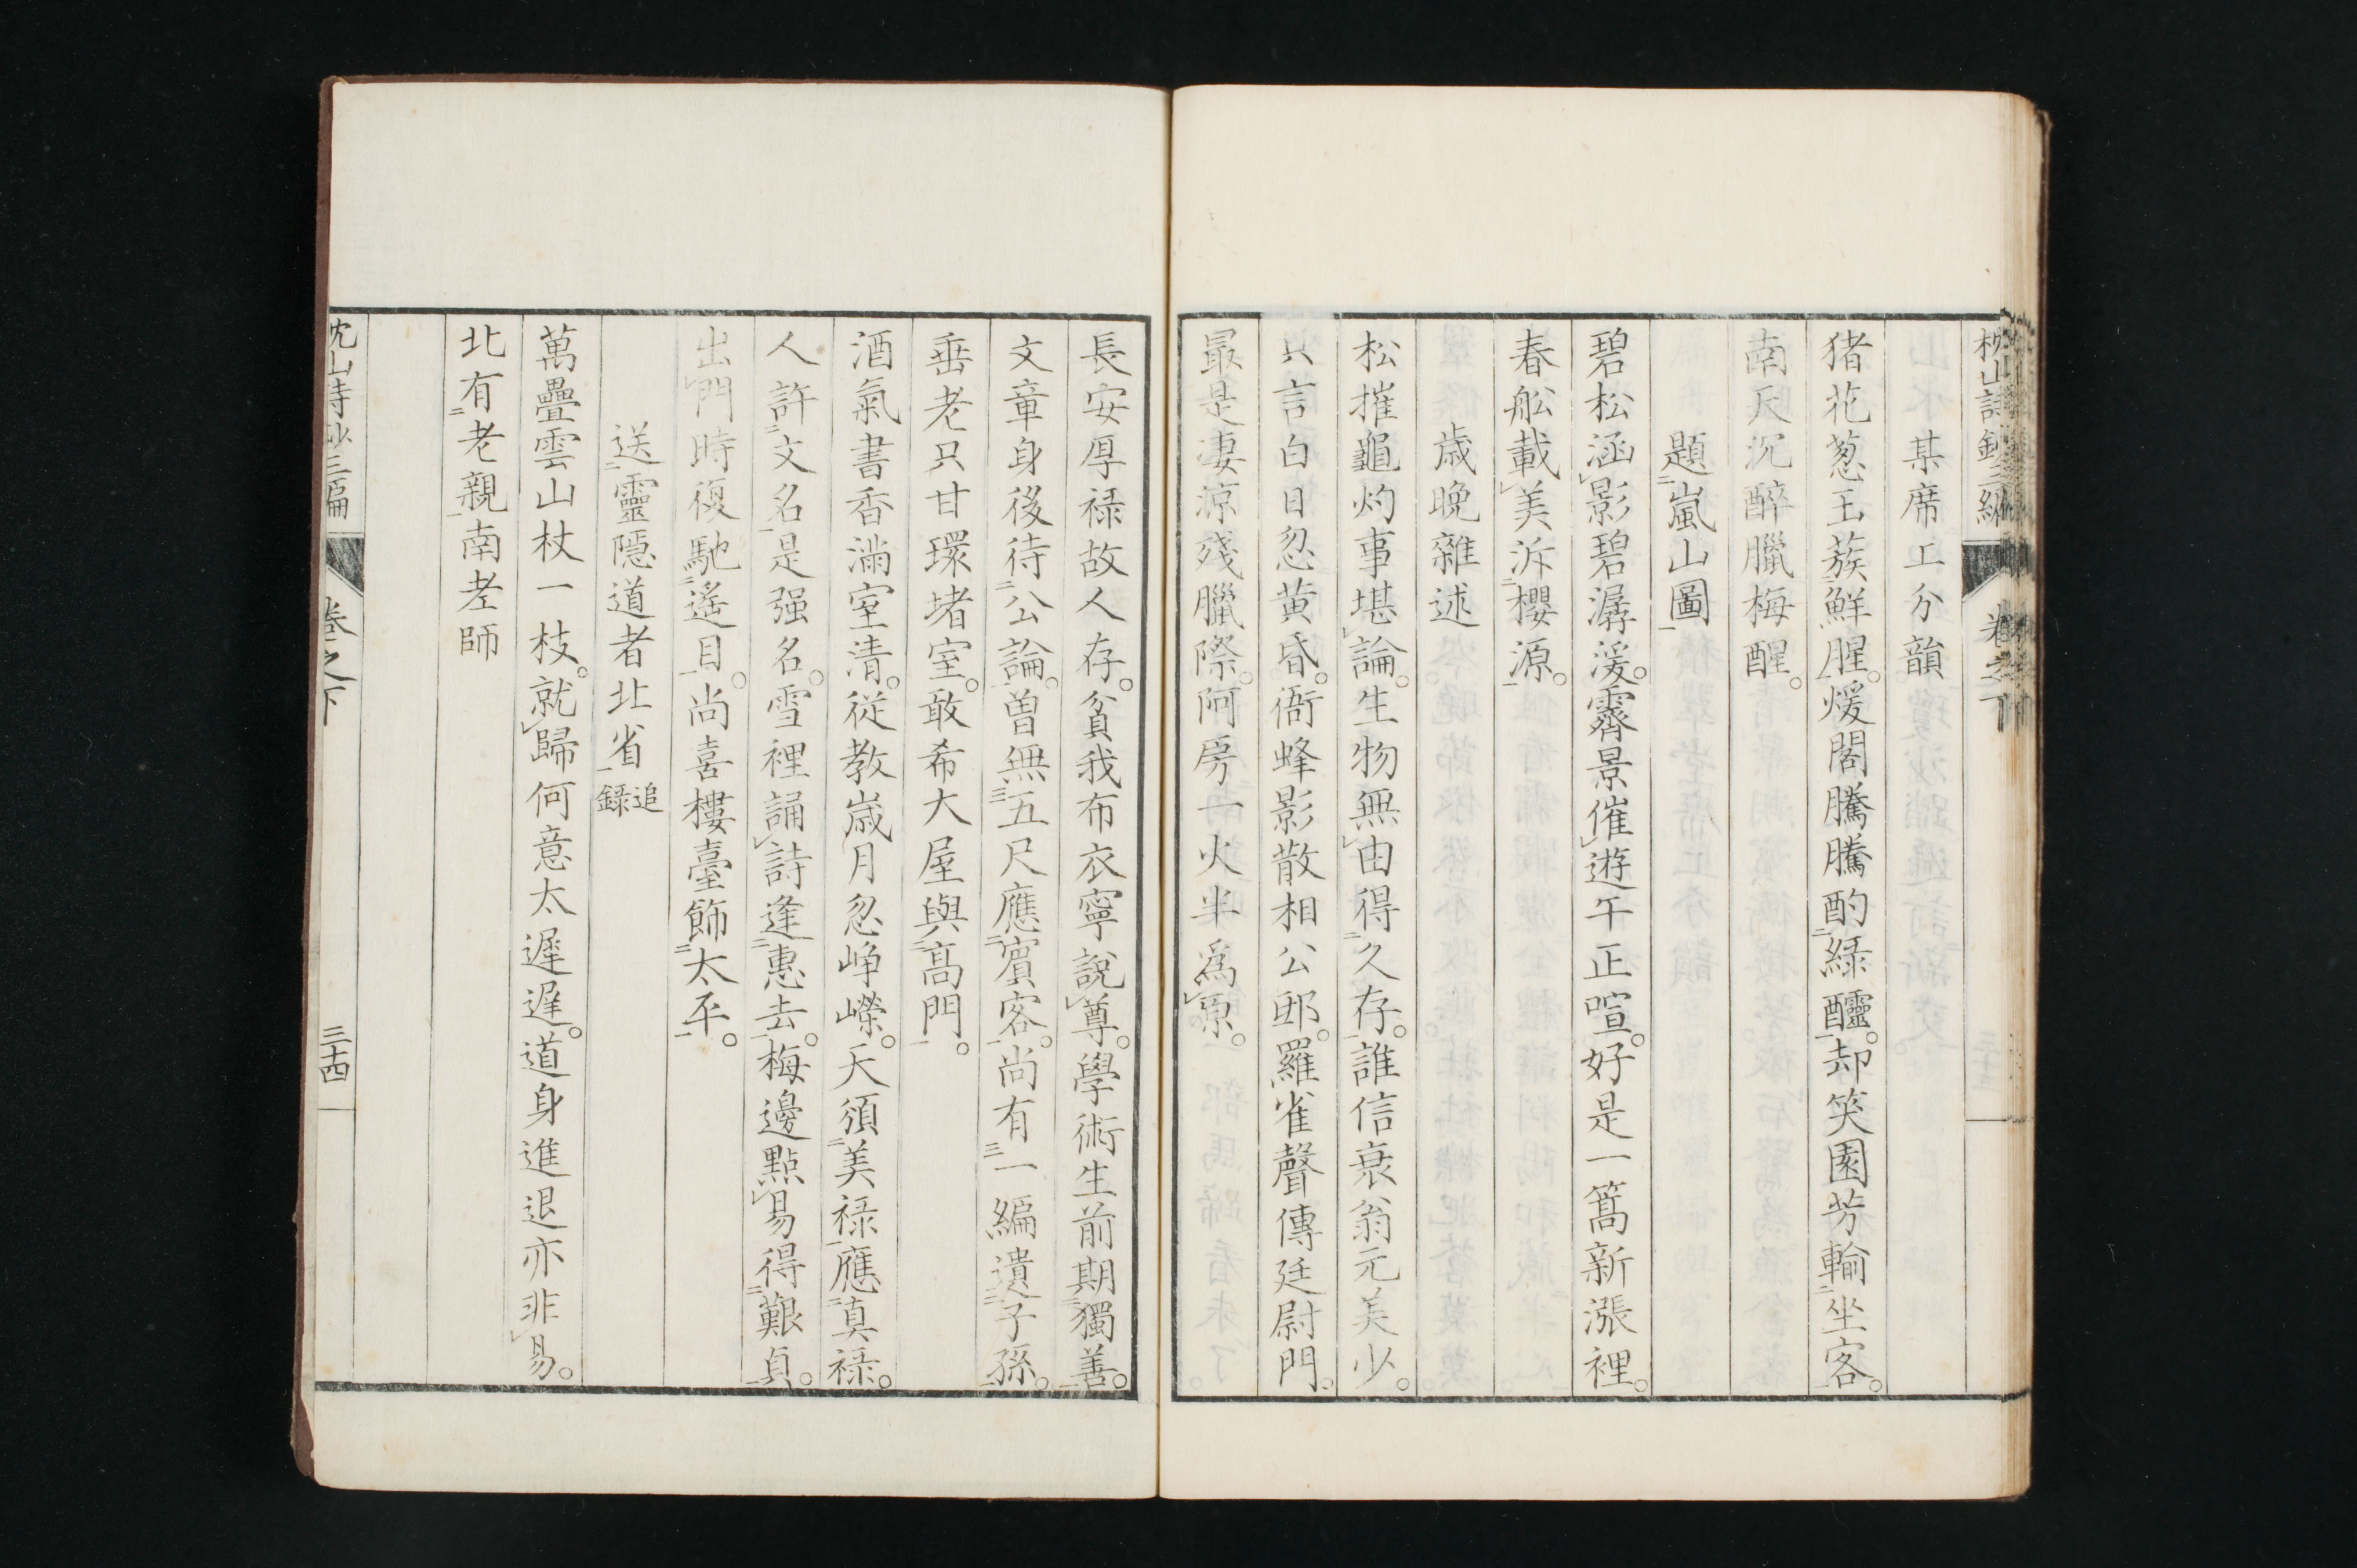 某席上分韻
猪花葱玉蔟鮮腥。煖閣騰騰酌綠醽。却笑園芳輸坐客。
南天沉醉臘梅醒。
題嵐山圖
碧松涵影碧潺湲。霽景催遊午正喧。好是一篙新漲裡。
春舩載美泝櫻源。
歲晚雜述
松摧龜灼事堪論。生物無由得久存。誰信衰翁元美少。
只言白日忽黄昏。衙蜂影散相公邸。羅雀聲傳廷尉門。
最是凄凉殘臘際。阿房一火半為原。
長安厚祿故人存。貧我布衣寧說尊。學術生前期獨善。
文章身後待公論。曽無五尺應賓客。尚有一編遺子孫。
垂老只甘環堵室。敢希大屋與高門。
酒氣書香滿室清。從教歲月忽崢嶸。天須美祿應真祿。
人許文名是强名。雪裡誦詩逢惠去。梅邊點易得艱貞。
出門時復馳遙目。尚喜樓臺飾太平。
送靈隱道者北省 追録
萬疊雲山杖一枝。就歸何意太遲遲。道身進退亦非易。
北有老親南老師
枕山詩鈔三編
卷之下
三十四